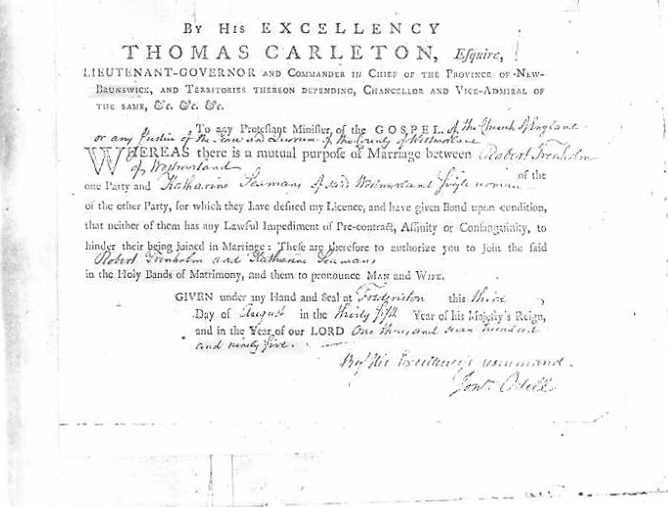 By His EXCELLENCY
THOMAS CARLETON, Esquire,
LIEUTENANT-GOVERNOR AND COMMANDER IN CHIEF OF THE PROVINCE OF NEW-
BRUNSWICK, AND TERRITORIES THEREON DEPENDING, CHANCELLOR AND VICE-ADMIRAL OF
THE SAME, &c. &c. &c.
To any Protestant Minister, of the GOSPEL of the Church of England
or any Justice of the Peace and Quorum of the County of Westmorland
WHEREAS there is a mutual purpose of Marriage between Robert Trenholm
of Westmorland of the
one Party and Katharine Seamans of said Westmorland Single woman
of the other Party, for which they have desired my Licence, and have given Bond upon condition,
that neither of them has any Lawful Impediment of Pre-contract, Affinity or Consanguinity, to
hinder their being joined in Marriage: These are therefore to authorize you to join the said
Robert Trenholm and Katharine Seamans
in the Holy Bands of Matrimony, and them to pronounce MAN AND WIFE.
GIVEN under my Hand and Seal at Fredericton this third
Day of August in the thirty fifth Year of his Majesty's Reign,
and in the Year of our LORD One thousand seven hundred
and ninety five.
By His Excellency's command.
Jonn. Odell